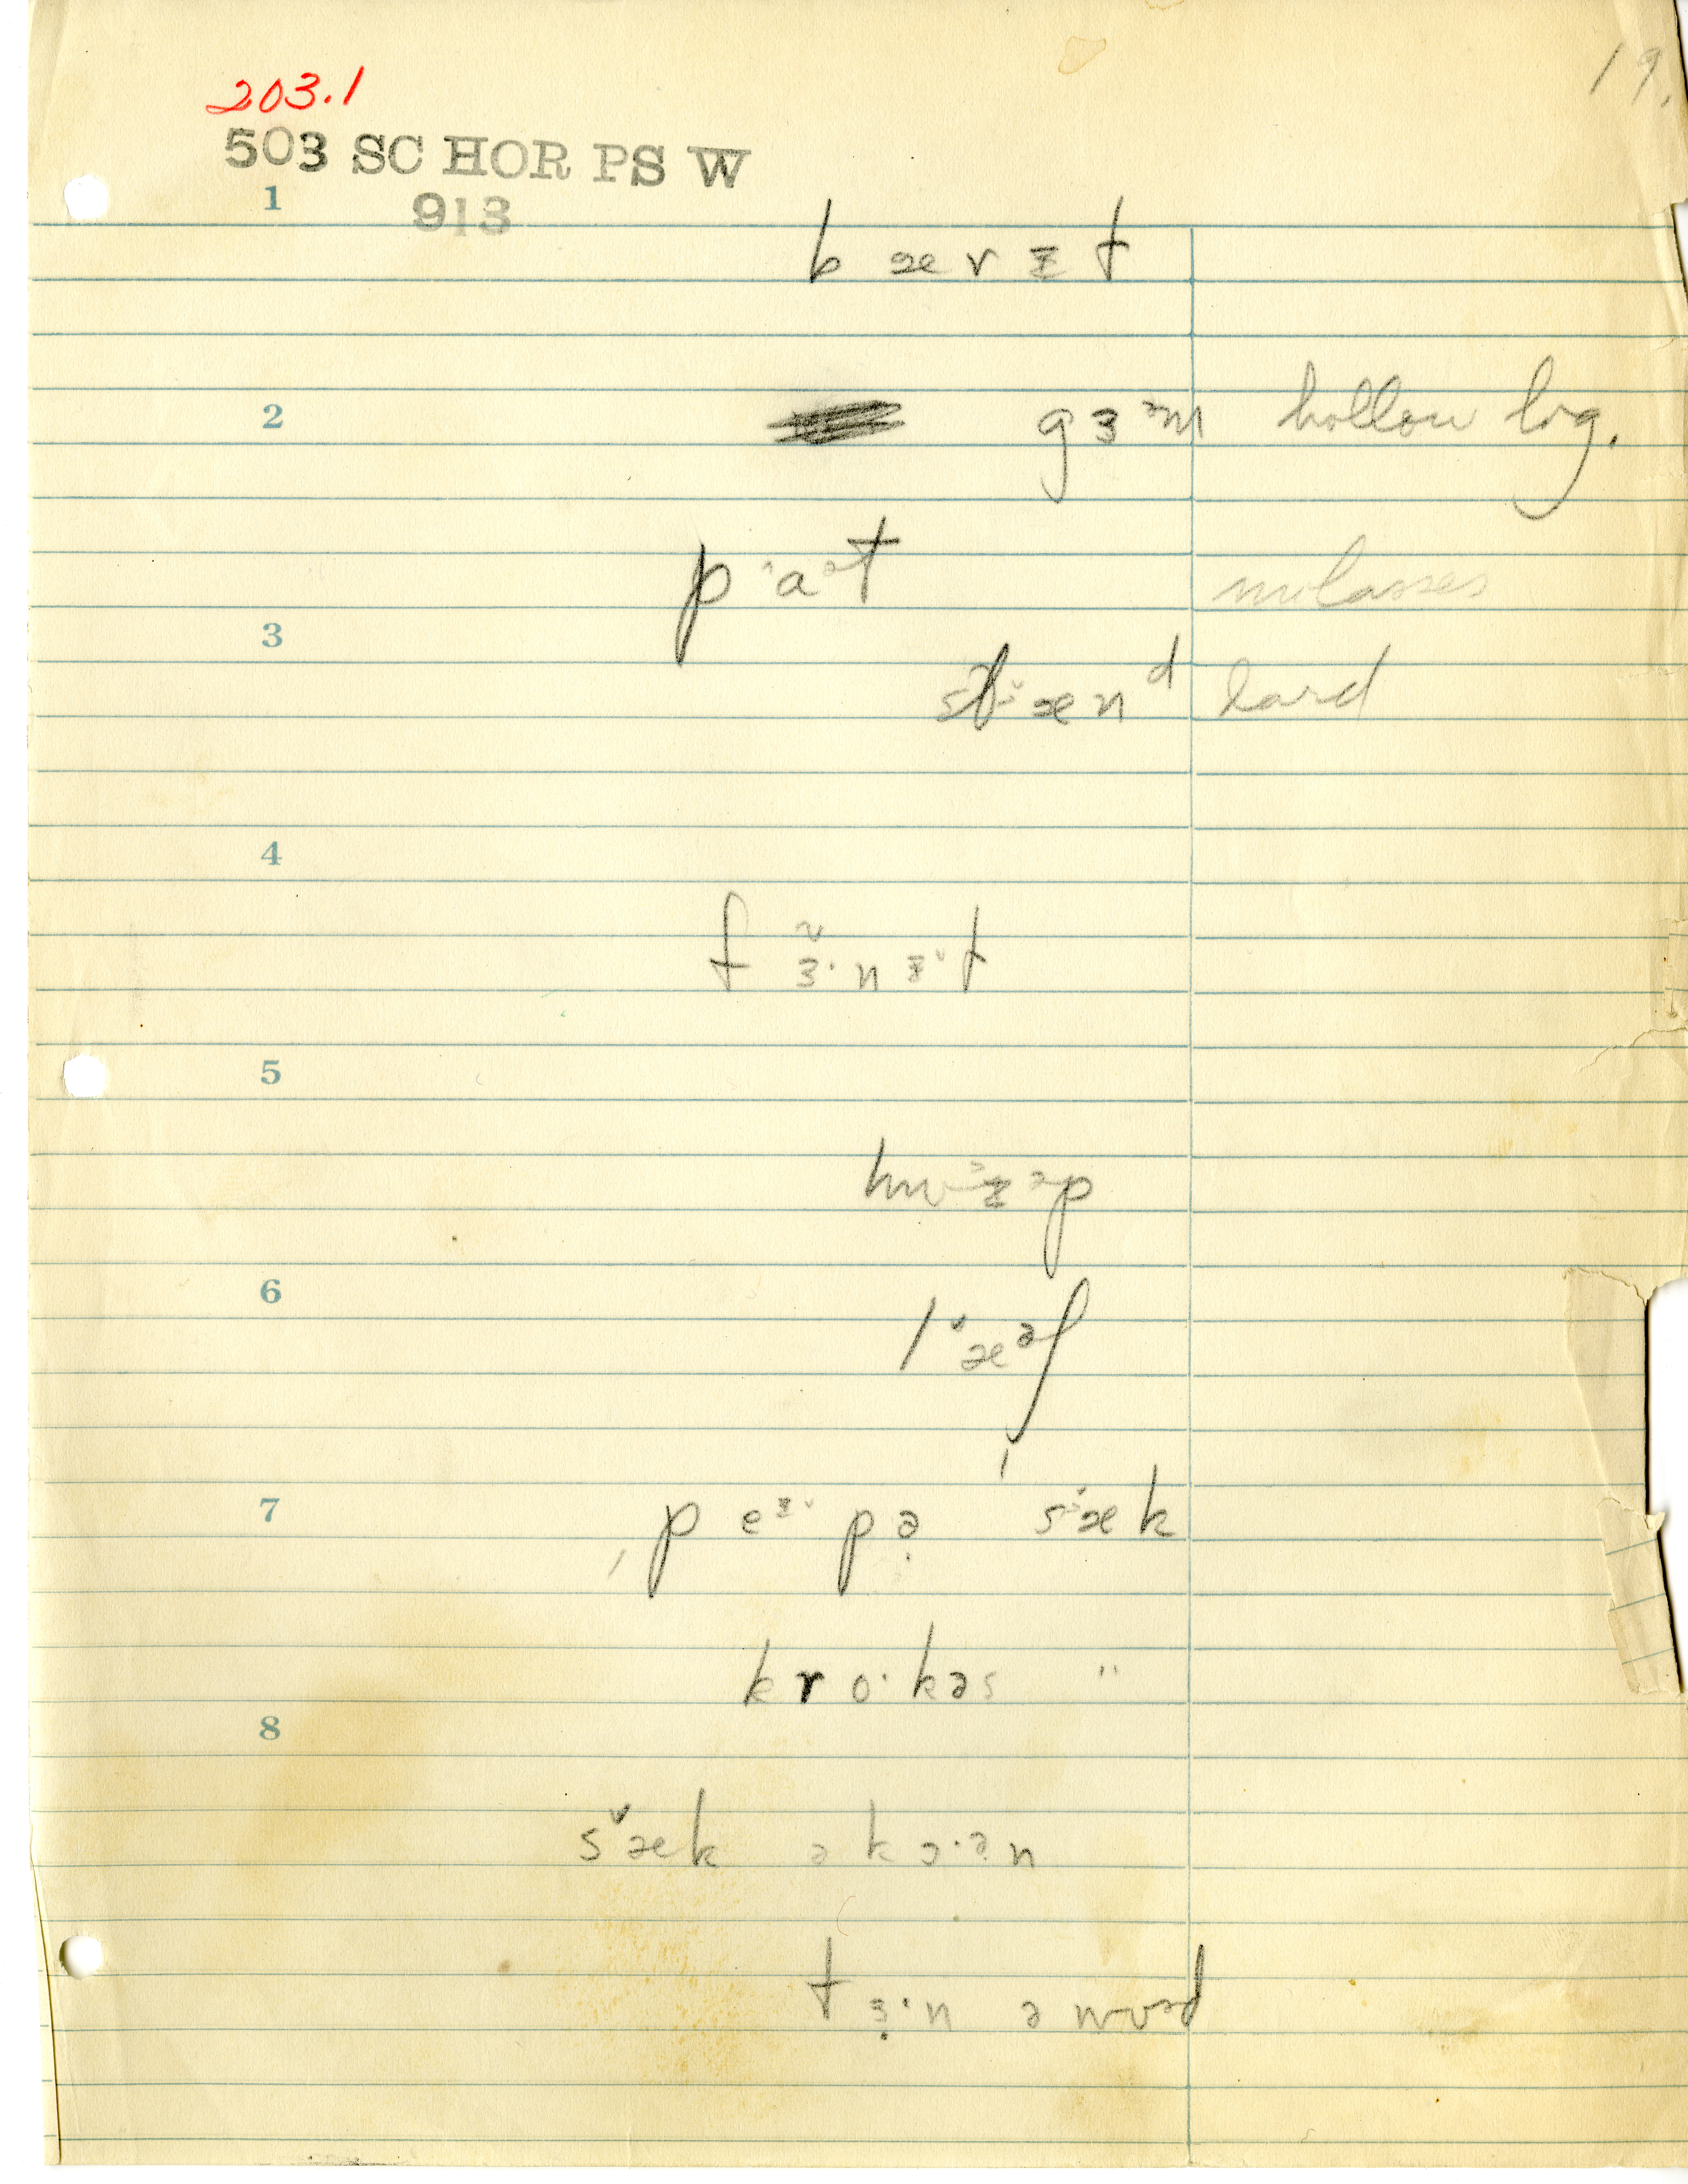 19.
203.1
503 SC HOR PS W
1
913
b æ r ɪ t
2
g ɜ ᵊm hollow log.
p ˄a ᵊt molasses
3
st˅æn ᵈ lard
4
f ɜ̃· n ɪ˅ t
5
hw ɪ ᵊp
6
l ˅æ ᵊf
7
ˌp eᶦ˅ p ə̣ ˈs˅æ k
k r o· k ə s "
8
s˅æk ə k ɔ· ə̣ n
t ɜ̣· n ə wʊəd